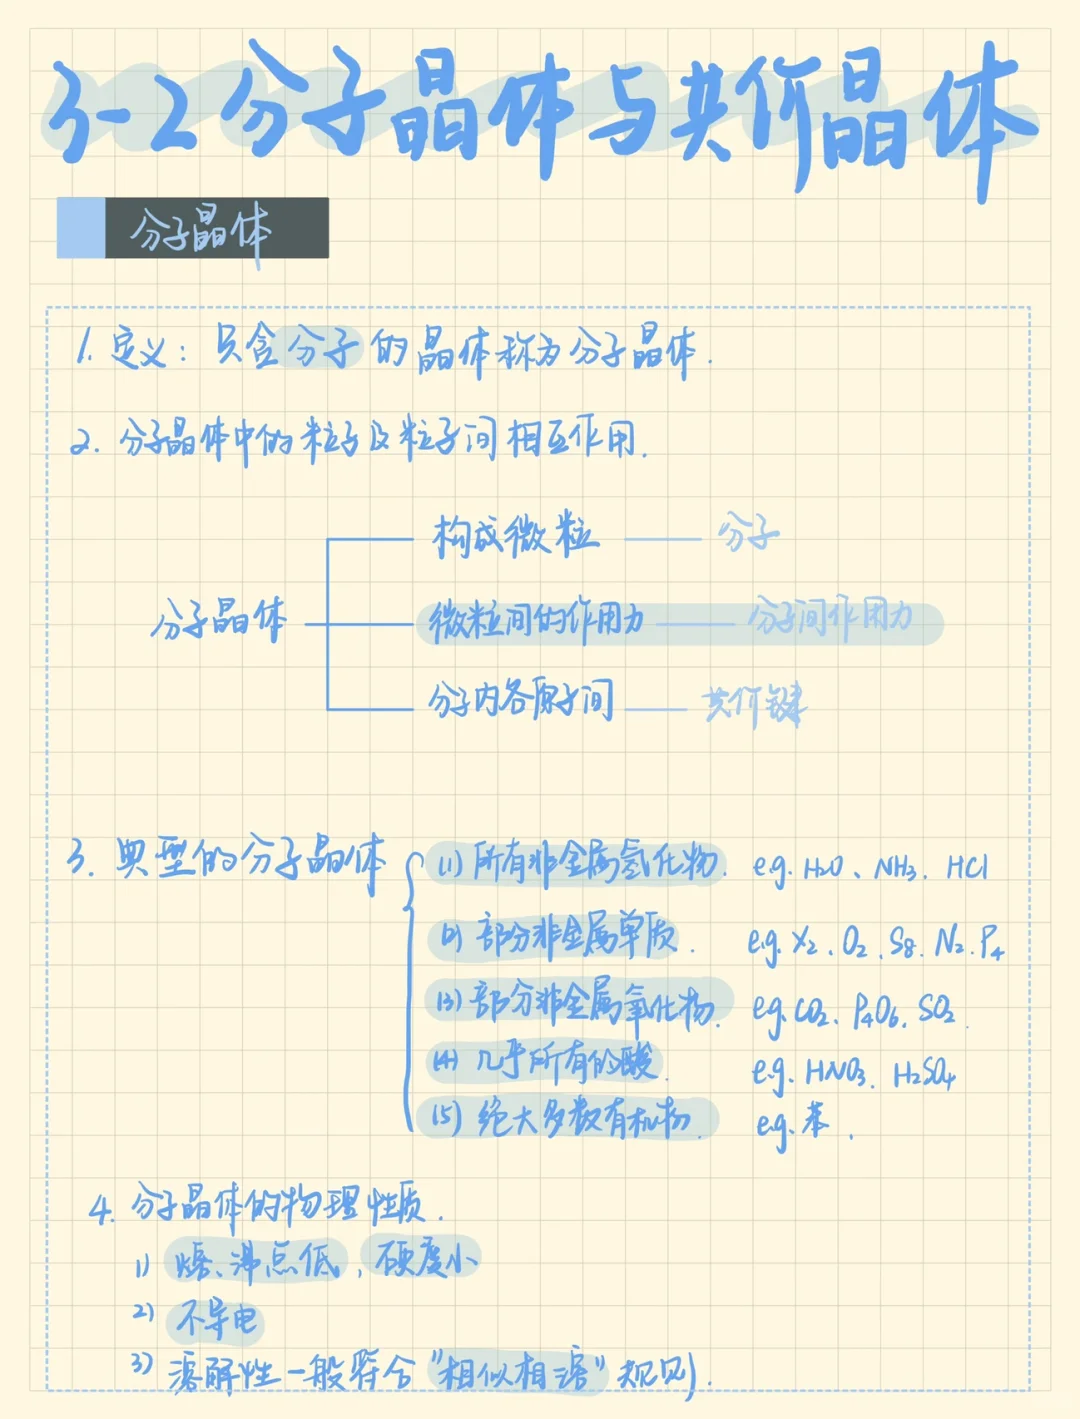 3-2分子晶体与共价晶体
分子晶体
1. 定义：只含分子的晶体称为分子晶体.
2. 分子晶体中的粒子及粒子间相互作用.
构成微粒 — 分子
分子晶体 微粒间的作用力 — 分子间作用力
分子内各原子间 — 共价键
3. 典型的分子晶体 (1) 所有非金属氢化物. e.g. H2O、NH3. HCl
(2) 部分非金属单质. e.g. X2、O2、S8. N2. P4
(3) 部分非金属氧化物. e.g. CO2、P4O6、SO2.
(4) 几乎所有的酸. e.g. HNO3、H2SO4
(5) 绝大多数有机物. e.g. 苯.
4. 分子晶体的物理性质.
1) 熔、沸点低, 硬度小
2) 不导电
3) 溶解性一般符合"相似相溶"规则.